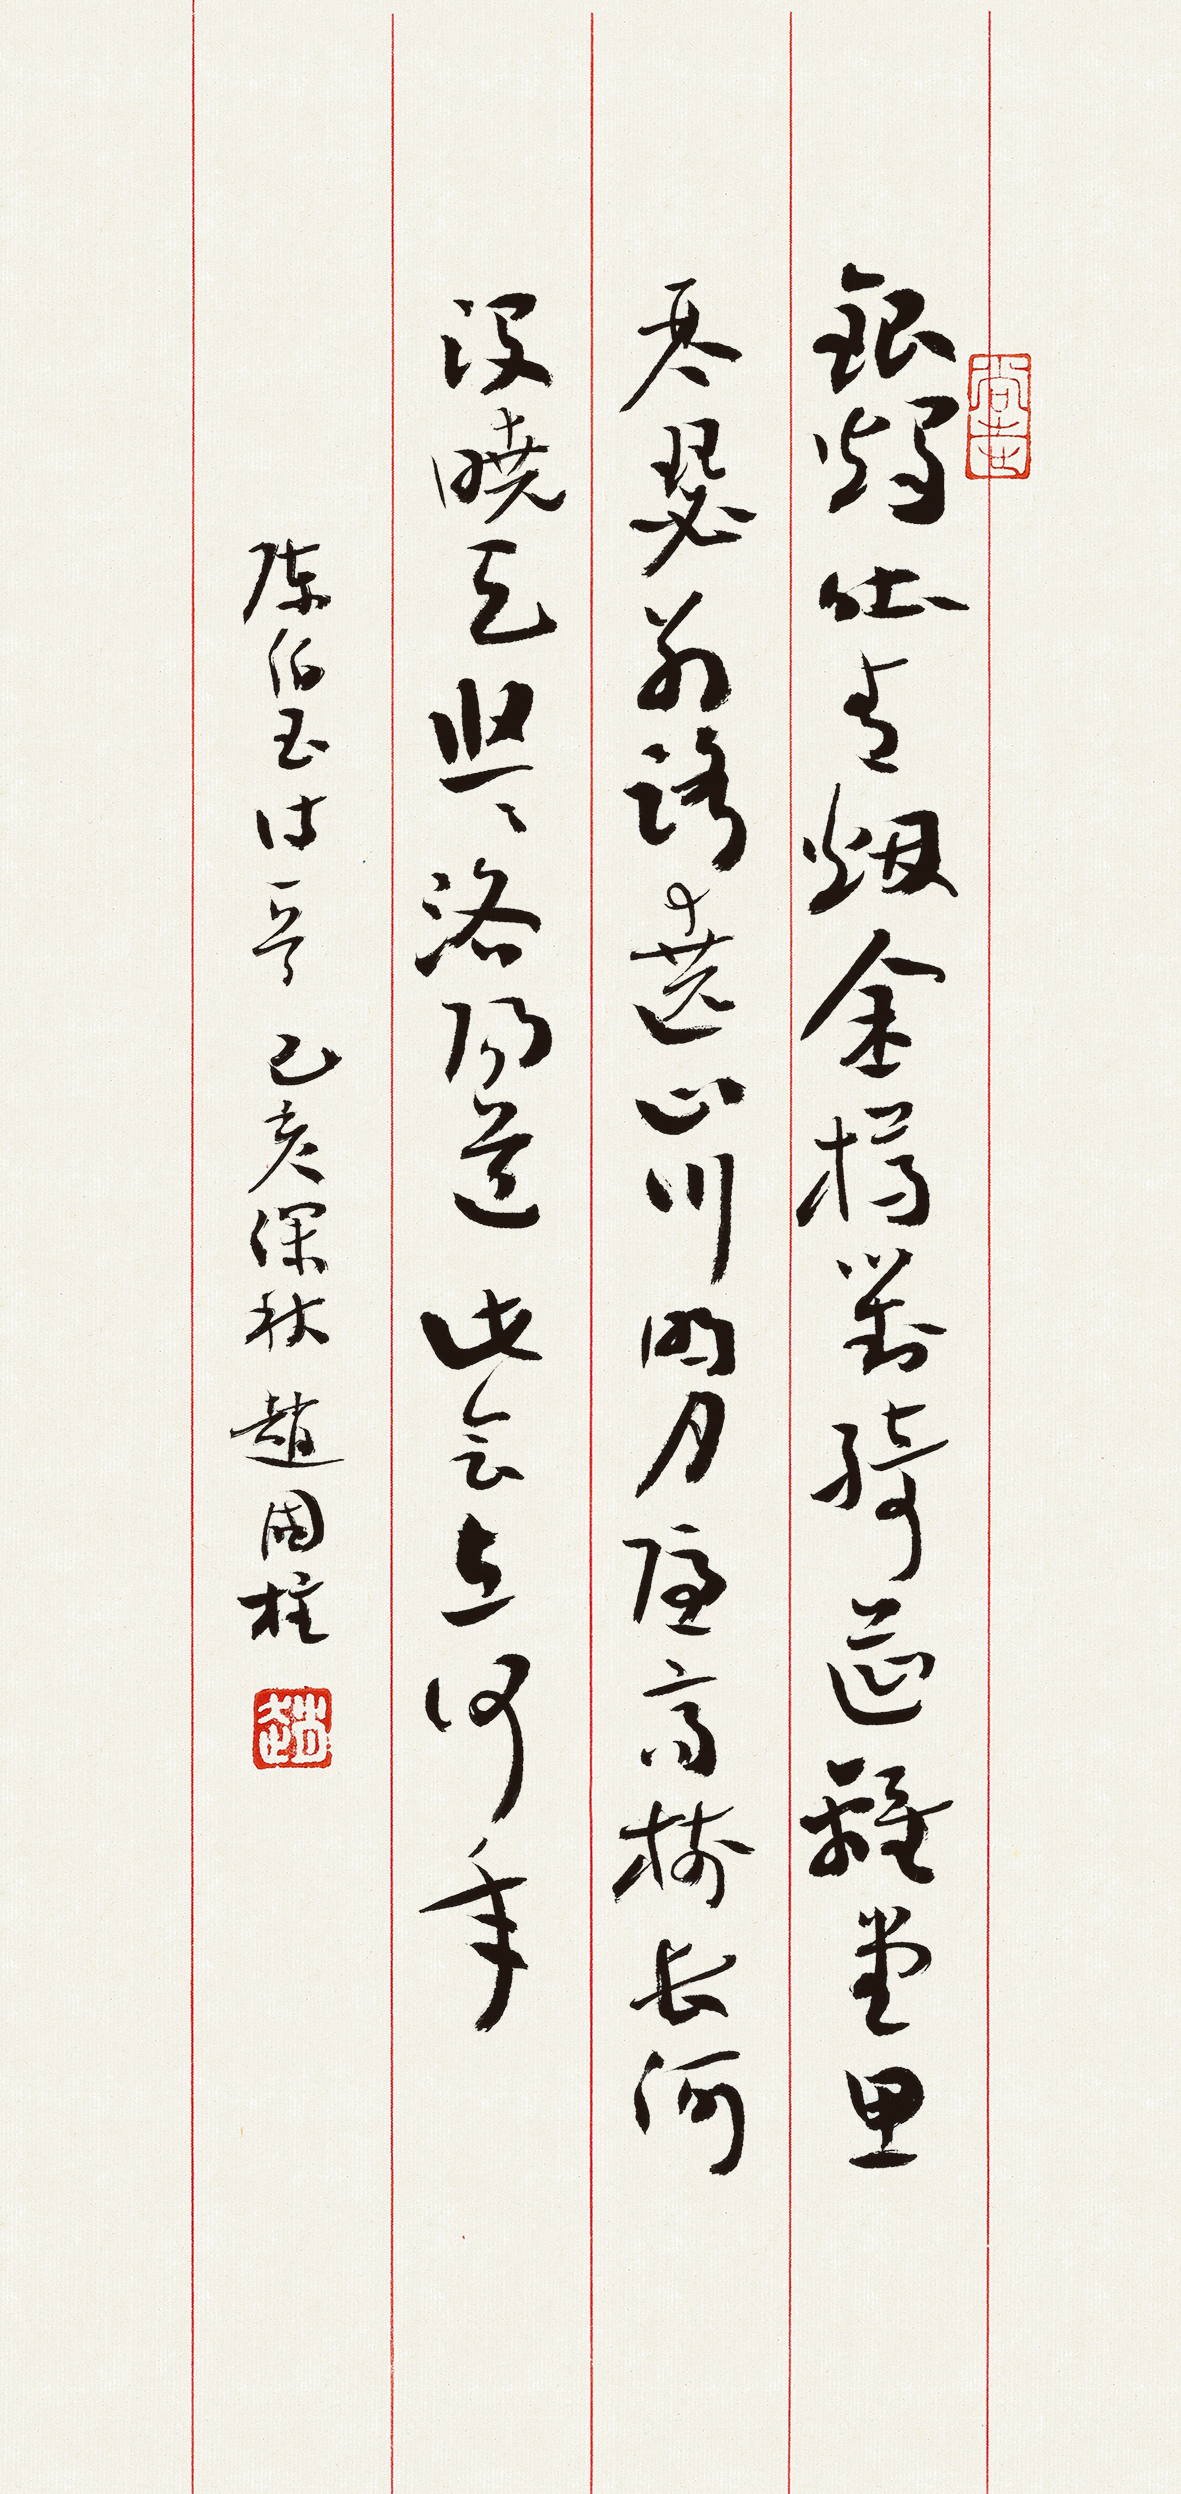 銀燭吐青烟金樽對綺筵離堂里
琴瑟别路遶山川明月隱高樹長河
没曉天悠〻洛陽道此會在何年
陳伯玉詩一首 己亥深秋 趙國柱